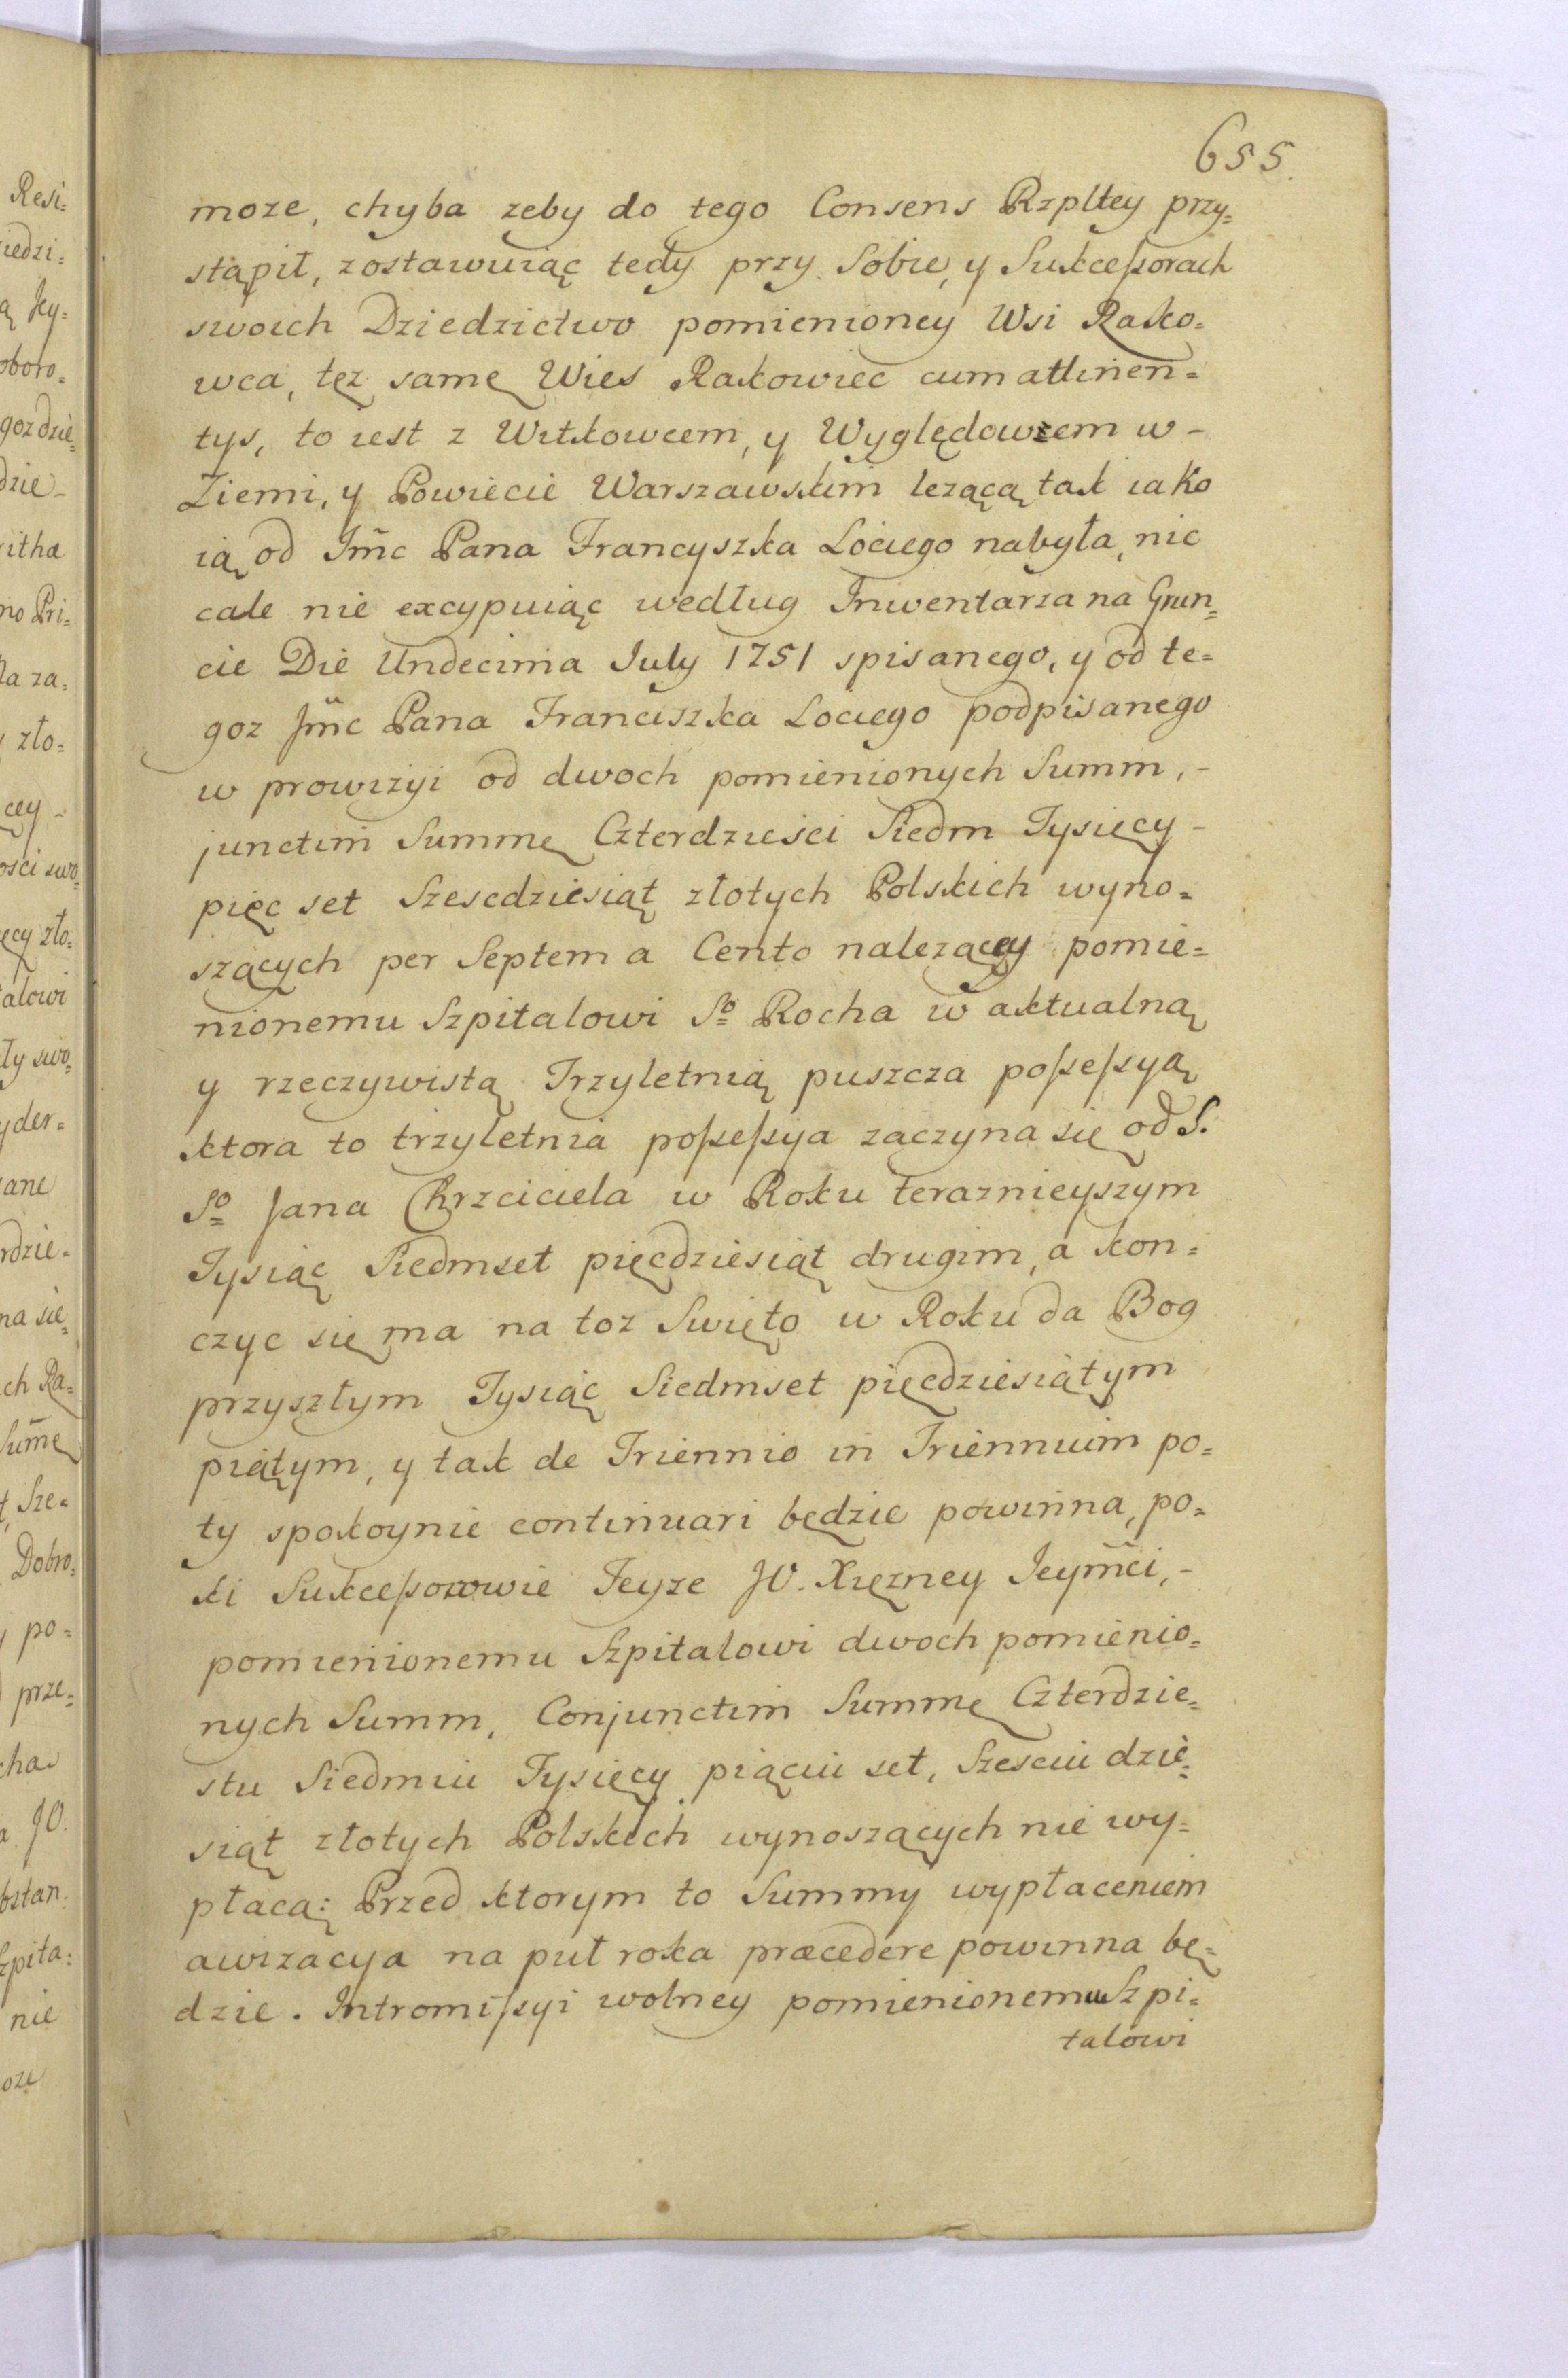 655.
moze, chyba zeby do tego Consens Rzpltey przy=
stąpił, zostawuiąc tedy przy Sobie, y Sukceßorach
swoich Dziedzictwo pomienioney Wsi Rako=
wca, tęz samę Wies Rakowiec cum attinen=
tys, to iest z Witkowcem, y Wyględowem w-
Ziemi, y Powiecie Warszawskim lezącą tak iako
ią od Jmc Pana Francyszka Lociego nabyła, nic
cale nie excypuiąc według Inwentarza na Grun=
cie Die Undecima July 1751 spisanego, y od te=
goz Jmc Pana Franciszka Lociego podpisanego
w prowizyi od dwoch pomienionych Summ, -
junctim Summę Czterdziesci Siedm Tysięcy -
pięc set Szescdziesiąt złotych Polskich wyno=
szących per Septem a Cento nalezącey pomie=
nionemu Szpitalowi So Rocha w aktualną
y rzeczywistą Trzyletnią puszcza poßeßyą
ktora to trzyletnia poßeßya zaczyna się od S.
So Jana Chrzciciela w Roku teraznieyszym
Tysiąc Siedmset pięcdziesiąt drugim, a kon=
czyc się ma na toz Swięto w Roku da Bog
przyszłym Tysiąc Siedmset pięcdziesiątym
piątym, y tak de Triennio in Triennium po=
ty spokoynie continuari będzie powinna, po=
ki Sukceßorowie Teyze JO. Xięzney Jeymci, -
pomienionemu Szpitalowi dwoch pomienio=
nych Summ, Conjunctim Summę Czterdzie=
stu Siedmiu Tysięcy piąciu set, Szesciu dzie=
siąt złotych Polskich wynoszących nie wy=
płacą: Przed ktorym to Summy wypłaceniem
awizacya na puł roka præcedere powinna bę=
dzie. Intromißyi wolney pomienionemu Szpi=
talowi